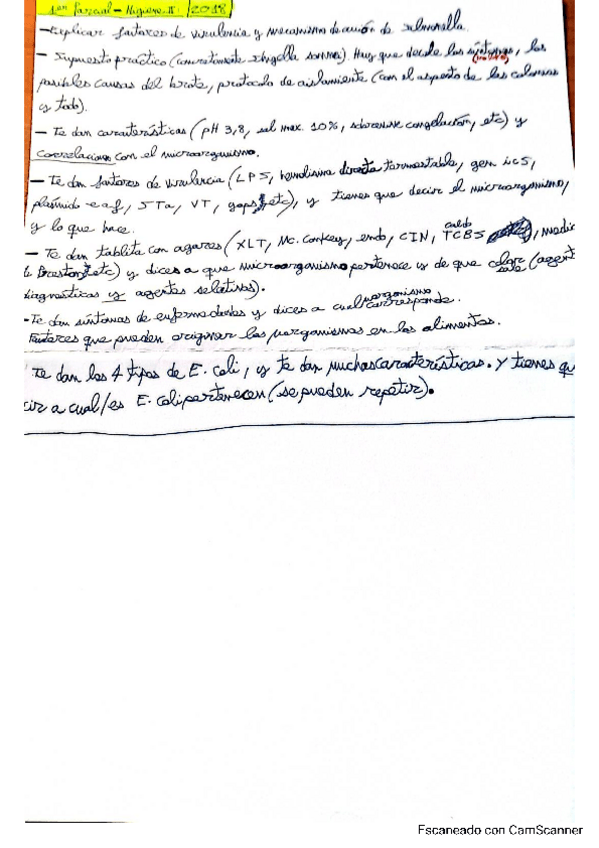 1er Parcial - Higiene II: 2018
- Explicar factores de virulencia y mecanismo de acción de Salmonella.
- Supuesto práctico (concretamente Shigella sonnei). Hay que decir los síntomas, las
posibles causas del brote, protocolo de aislamiento (con el aspecto de las colonias
y todo).
- Te dan características (pH 3,8, sal max. 10%, sobrevive congelación, etc) y
correlacionas con el microorganismo.
- Te dan factores de virulencia (LPS, hemolisina directa termoestable, gen ics,
plásmido eaf, STa, VT, etc), y tienes que decir el microorganismo,
y lo que hace.
- Te dan tablita con agares (XLT, Mc. Conkey, endo, CIN, TCBS, caldo
etc) y dices a que microorganismo pertenece y de que color sale (agentes
diagnósticos y agentes selectivos).
- Te dan síntomas de enfermedades y dices a cual organismo corresponde.
Factores que pueden originar los organismos en los alimentos.
Te dan los 4 tipos de E. coli, y te dan muchas características. Y tienes qu
cir a cual/es E. coli pertenecen (se pueden repetir).
Escaneado con CamScanner